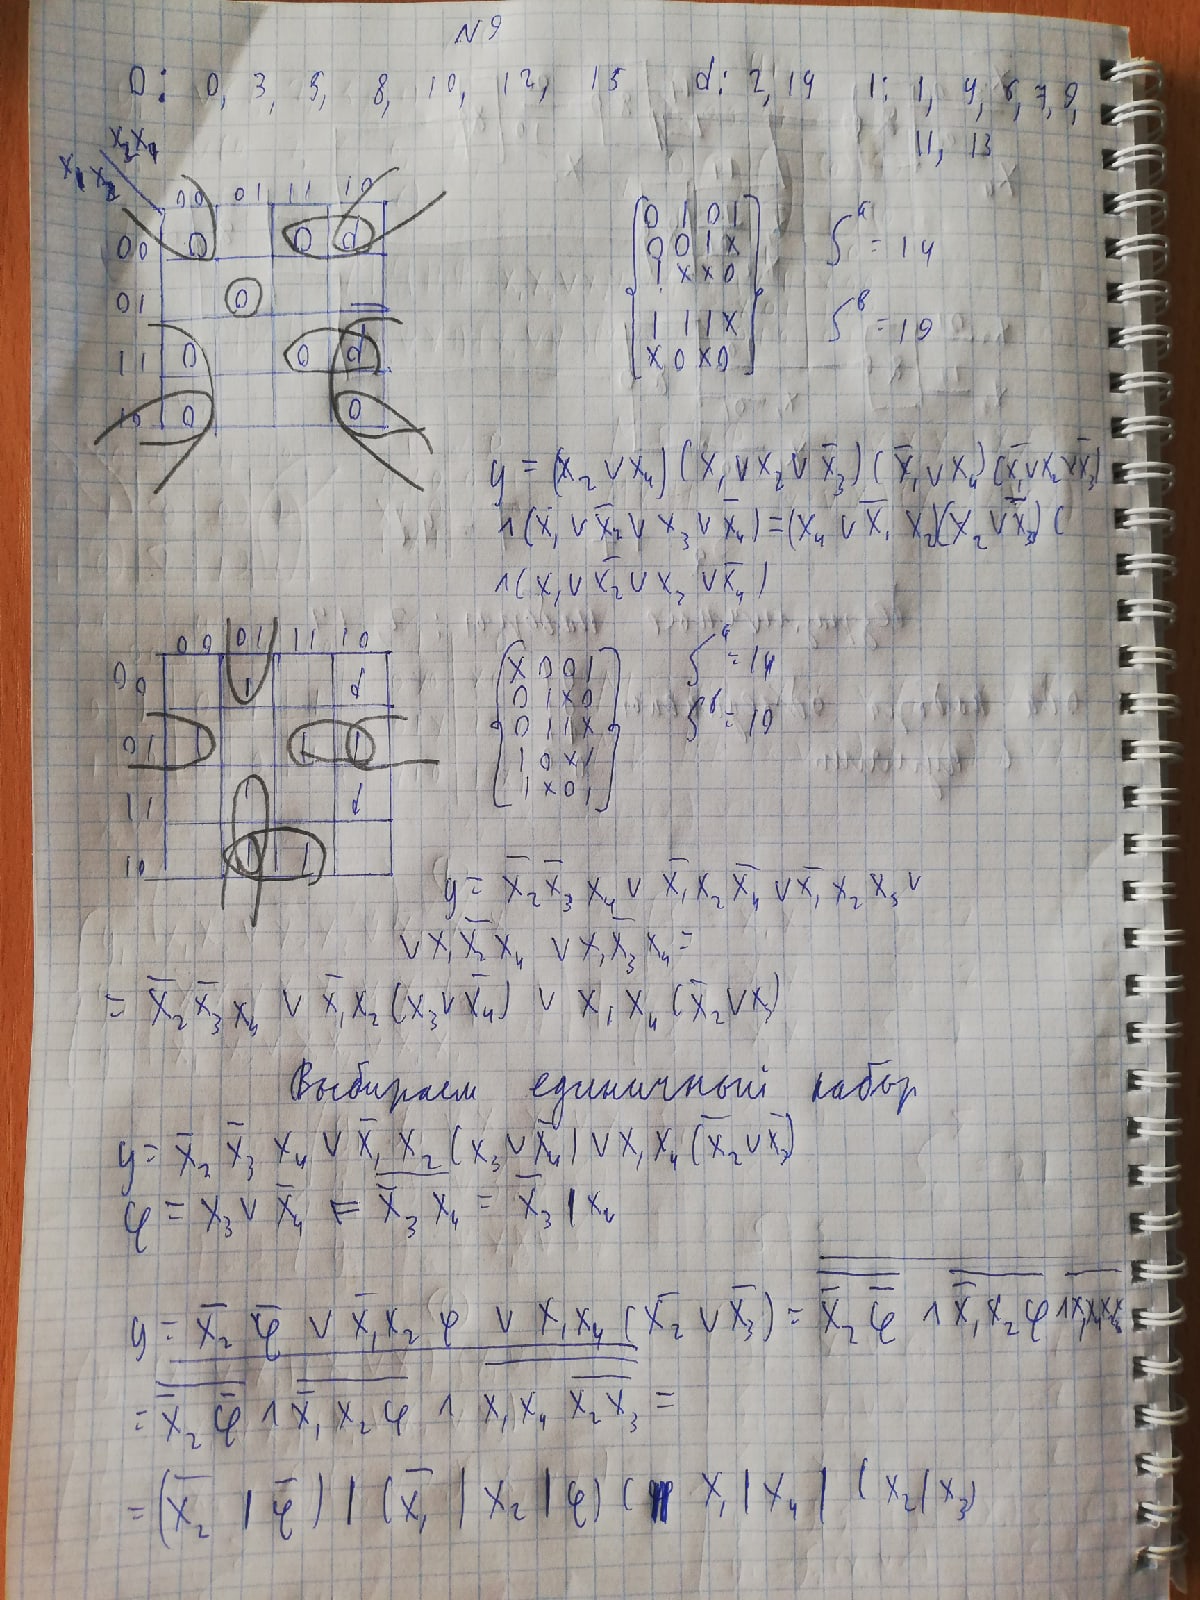 N 9
0: 0, 3, 5, 8, 10, 12, 15 d: 2, 14 1: 1, 4, 6, 7, 9,
11, 13
x₃x₄
x₁x₂
00 01 11 10
00 0 0 d
01 0
11 0 0 d
10 0 0
0 1 0 1
0 0 1 x
1 x x 0
1 1 1 x
x 0 x 0
Sᵃ = 14
Sᵇ = 19
y = (x₂ ∨ x₄) (x₁ ∨ x₂ ∨ x̄₃) (x̄₁ ∨ x₄) (x̄₁ ∨ x̄₂ ∨ x̄₃)
∧ (x₁ ∨ x̄₂ ∨ x₃ ∨ x̄₄) = (x₄ ∨ x̄₁ x₂)(x₂ ∨ x̄₃) (
∧ (x₁ ∨ x̄₂ ∨ x₃ ∨ x̄₄)
00 01 11 10
00 1 d
01 1 1 1
11 1 d
10 1 1
x 0 0 1
0 1 x 0
0 1 1 x
1 0 x 1
1 x 0 1
Sᵃ = 14
Sᵇ = 19
y = x̄₂ x̄₃ x₄ ∨ x̄₁ x₂ x̄₄ ∨ x̄₁ x₂ x₃ ∨
∨ x₁ x̄₂ x₄ ∨ x₁ x̄₃ x₄ =
= x̄₂ x̄₃ x₄ ∨ x̄₁ x₂ (x₃ ∨ x̄₄) ∨ x₁ x₄ (x̄₂ ∨ x̄₃)
Выбираем единичный набор
y = x̄₂ x̄₃ x₄ ∨ x̄₁ x₂ (x₃ ∨ x̄₄) ∨ x₁ x₄ (x̄₂ ∨ x̄₃)
φ = x₃ ∨ x̄₄ = x̄₃ x₄ = x̄₃ | x₄
y = x̄₂ φ̄ ∨ x̄₁ x₂ φ ∨ x₁ x₄ (x̄₂ ∨ x̄₃) = x̄₂ φ̄ ∧ x̄₁ x₂ φ ∧
= x̄₂ φ̄ ∧ x̄₁ x₂ φ ∧ x₁ x₄ x₂ x₃ =
= (x̄₂ | φ̄) | (x̄₁ | x₂ | φ) ( x₁ | x₄ | (x₂ | x₃)